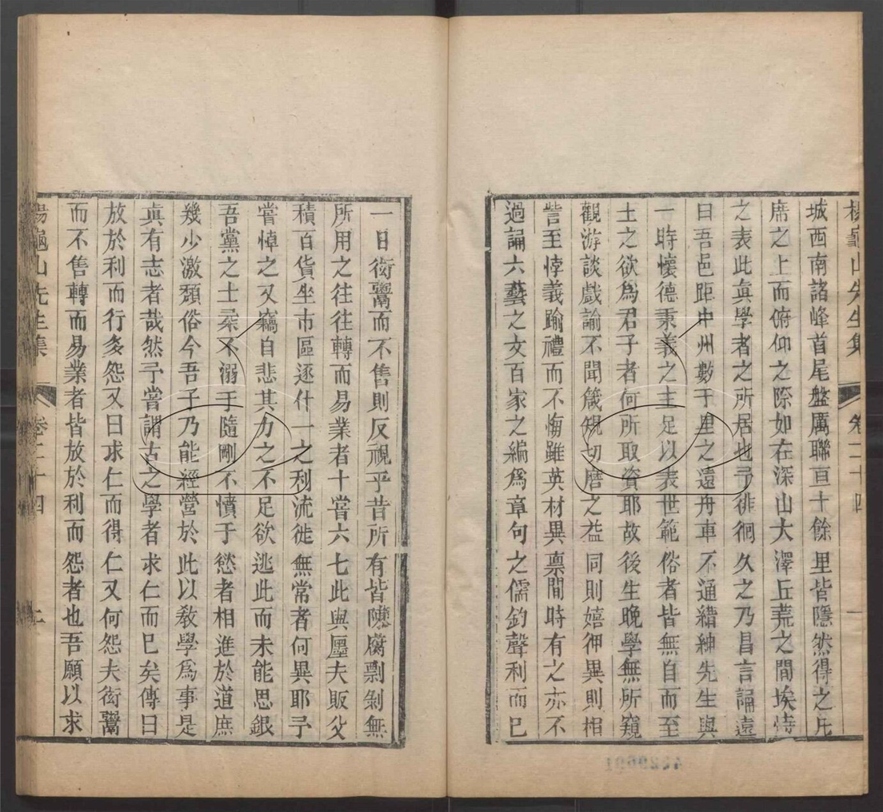 楊龜山先生集 卷二十四 一
城西南諸峰首尾盤厲聯亘十餘里皆隱然得之几
席之上而俯仰之際如在深山大澤丘荒之間埃
之表此眞學者之所居也予徘徊久之乃昌言誦遠
曰吾邑距中州數千里之遠舟車不通縉紳先生與
一時懷德秉義之士足以表世範俗者皆無自而至
士之欲爲君子者何所取資耶故後生晚學無所窺
觀游談戲論不聞箴規切磨之益同則嬉狎異則相
訾至悖義踰禮而不悔雖英材異禀間時有之亦不
過誦六藝之文百家之編爲章句之儒釣聲利而已
一日衒鬻而不售則反視平昔所有皆陳腐剽剝無
所用之往往轉而易業者十嘗六七此與廛夫販父
積百貨坐市區逐什一之利流徙無常者何異耶予
嘗悼之又竊自悲其力之不足欲逃此而未能思銀
吾黨之士柔不溺于隨剛不憤于慾者相進於道庶
幾少激頹俗今吾子乃能經營於此以敎學爲事是
眞有志者哉然予嘗謂古之學者求仁而已矣傳曰
放於利而行多怨又曰求仁而得仁又何怨夫衒鬻
而不售轉而易業者皆放於利而怨者也吾願以求
楊龜山先生集 卷二十四 上